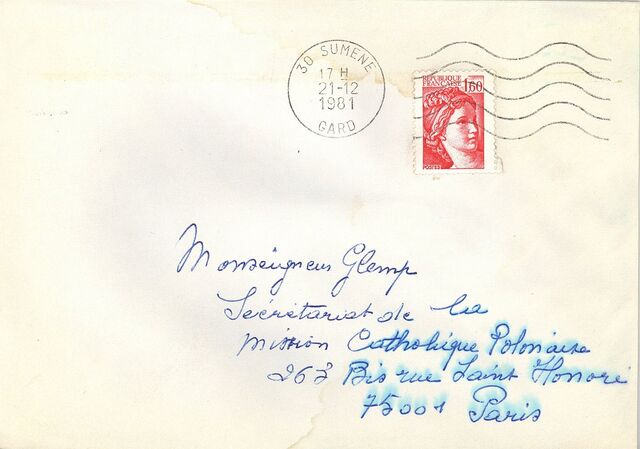 30 SUMENE
17 H
21-12
1981
GARD
REPUBLIQUE
FRANCAISE
1,60
Monseigneur Glemp
Secrétariat de la
Mission Catholique Polonaise
263 Bis rue Saint Honoré
75001 Paris